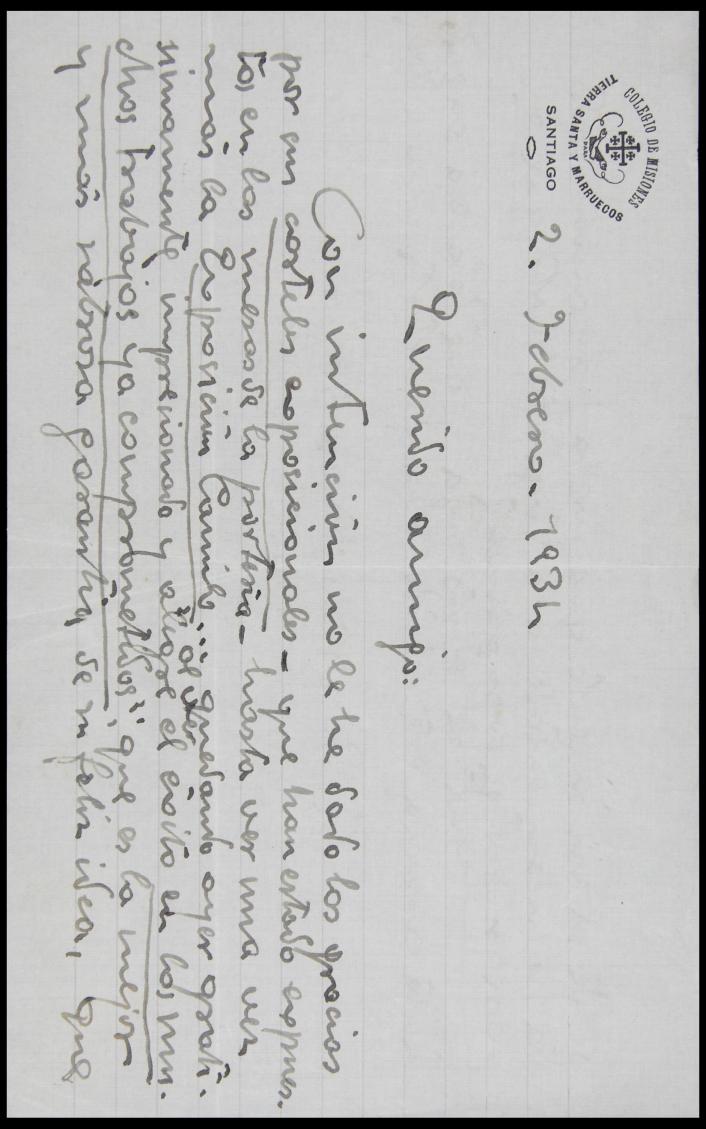 COLEGIO DE MISIONES
PARA
TIERRA SANTA Y MARRUECOS
SANTIAGO
2. Febrero. 1934
Querido amigo:
Con intención no le he dado las gracias
por sus carteles exposicionales - que han estado expues-
tos en las mesas de la portería - hasta ver una vez
más la Exposición Camilo... quedando ayer grati-
simamente impresionado y alegre al ver el éxito en los mu-
chos trabajos "ya comprometidos" que es la mejor
y más valiosa garantía de su feliz idea, que